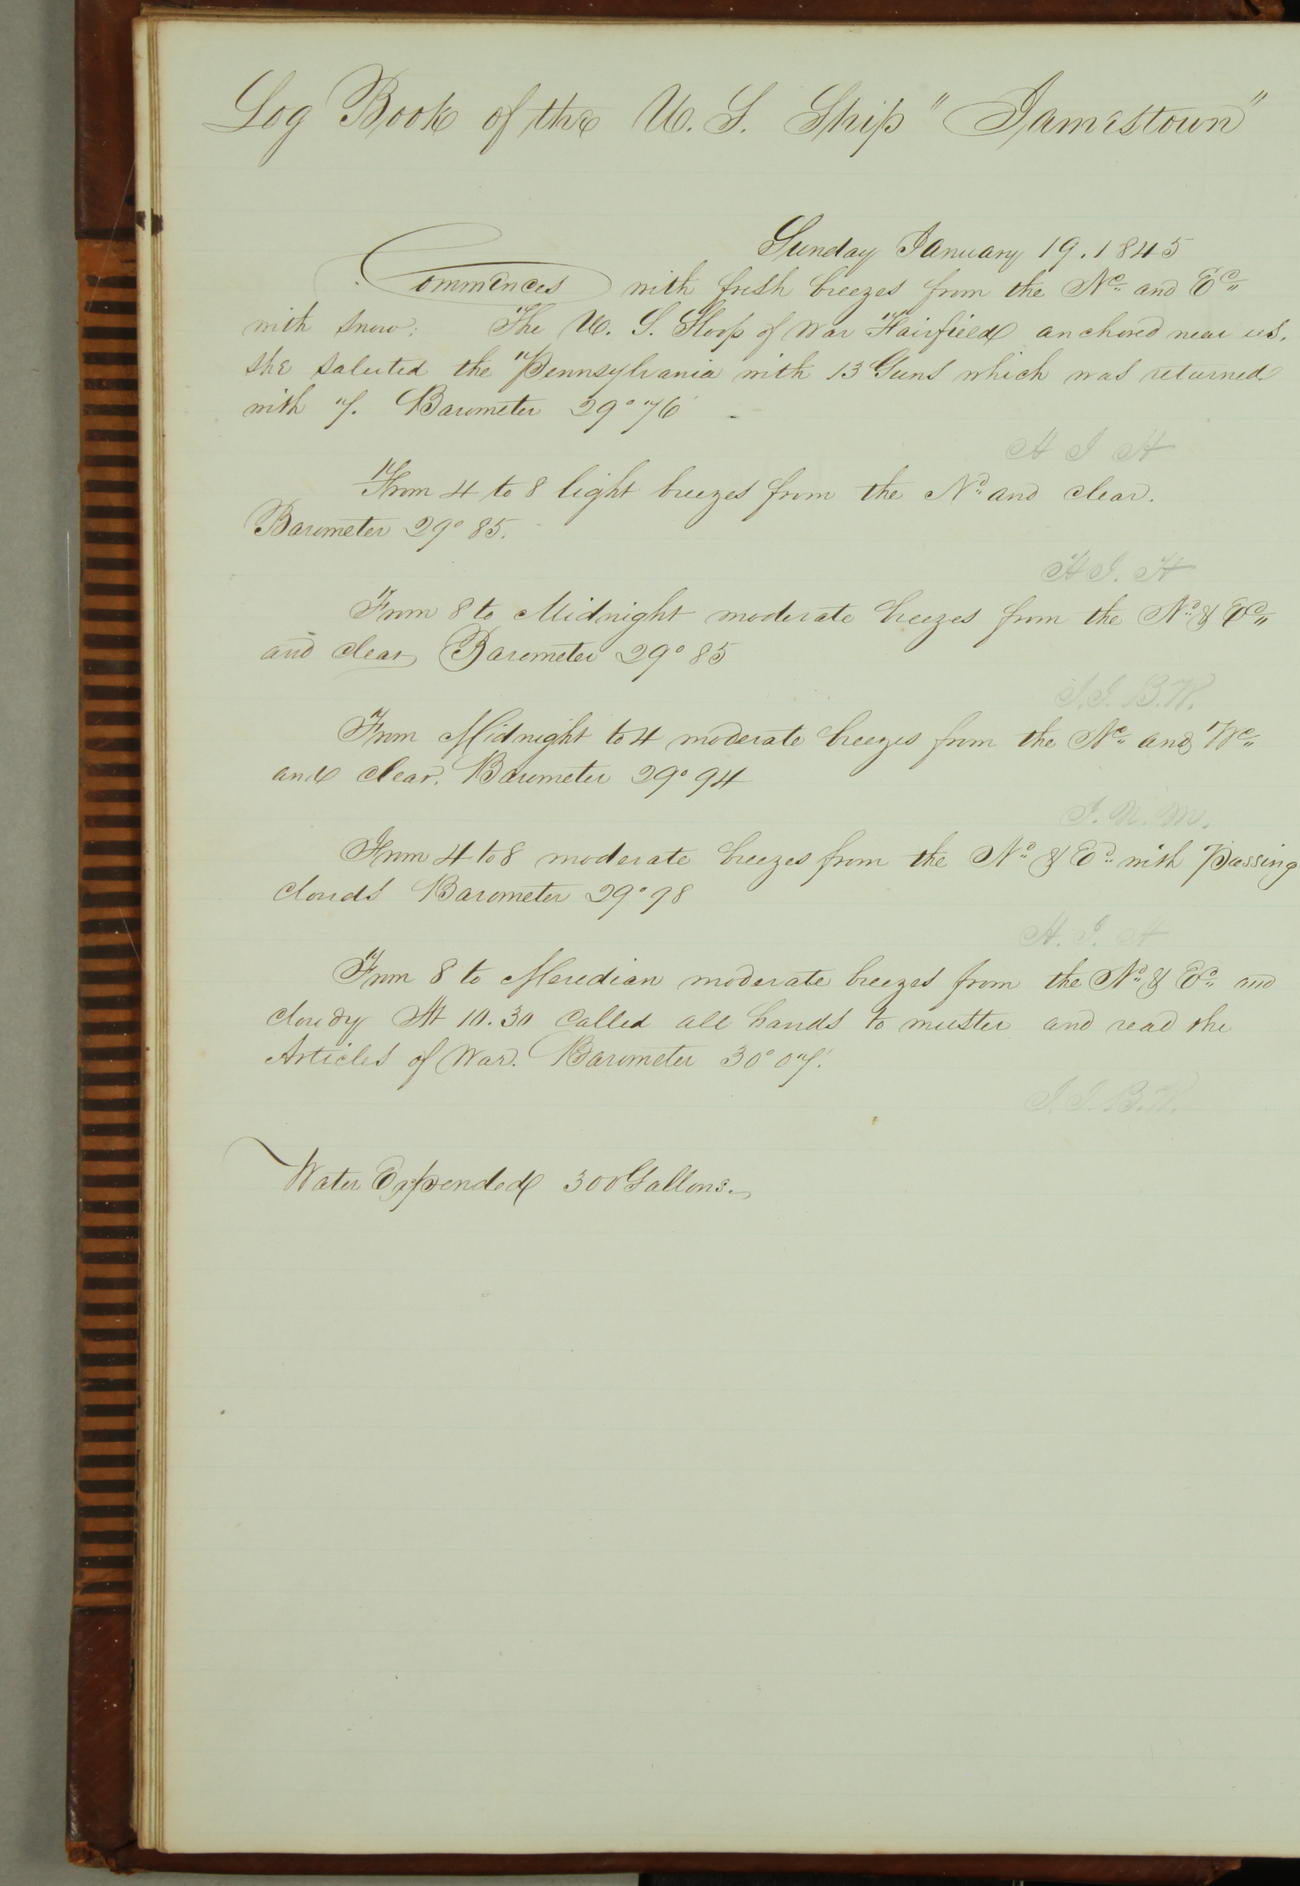 Log Book of the U. S. Ship "Jamestown"
Sunday January 19. 1845
Commences with fresh breezes from the Nd. and Ed.
with snow. The U. S. Sloop of War Fairfield anchored near us.
she saluted the Pennsylvania with 13 Guns which was returned
with 7. Barometer 29° 76
H J H
From 4 to 8 light breezes from the Nd. and clear.
Barometer 29° 85.
H J. H
From 8 to Midnight moderate breezes from the Nd. & Ed.
and clear Barometer 29° 85
J. J. B. W.
From Midnight to 4 moderate breezes from the Nd. and Wd.
and clear. Barometer 29° 94
J. N. M.
From 4 to 8 moderate breezes from the Nd. & Ed. with Passing
clouds Barometer 29° 98
H. J. H
From 8 to Meridian moderate breezes from the Nd. & Ed. and
cloudy At 10.30 Called all hands to muster and read the
Articles of War. Barometer 30° 07'.
J. J. B. W.
Water Expended 300 Gallons.